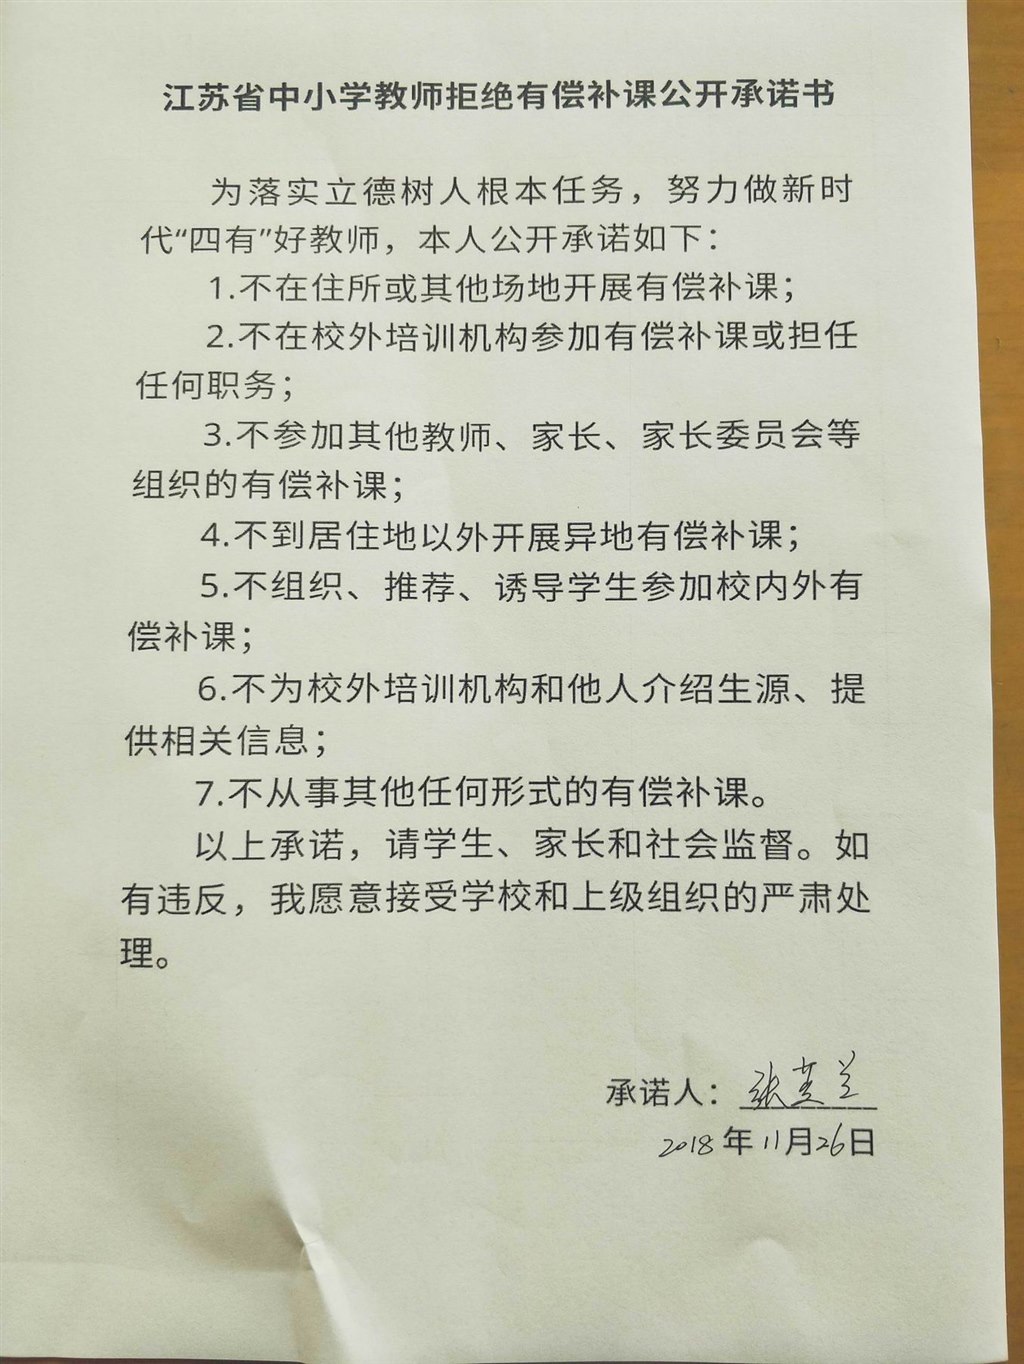 江苏省中小学教师拒绝有偿补课公开承诺书
为落实立德树人根本任务，努力做新时
代“四有”好教师，本人公开承诺如下：
1.不在住所或其他场地开展有偿补课；
2.不在校外培训机构参加有偿补课或担任
任何职务；
3.不参加其他教师、家长、家长委员会等
组织的有偿补课；
4.不到居住地以外开展异地有偿补课；
5.不组织、推荐、诱导学生参加校内外有
偿补课；
6.不为校外培训机构和他人介绍生源、提
供相关信息；
7.不从事其他任何形式的有偿补课。
以上承诺，请学生、家长和社会监督。如
有违反，我愿意接受学校和上级组织的严肃处
理。
承诺人：张 兰
2018年11月26日